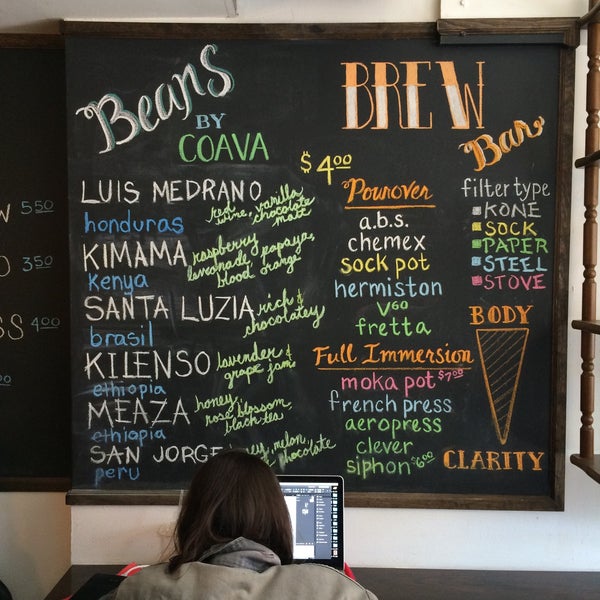 Beans
BY
COAVA
LUIS MEDRANO
red
wine, vanilla
chocolate
malt
honduras
KIMAMA
raspberry
lemonade, papaya,
blood orange
kenya
SANTA LUZIA
rich &
chocolatey
brasil
KILENSO
lavender &
grape jam
ethiopia
MEAZA
honey,
rose blossom,
black tea
ethiopia
SAN JORGE
melon,
chocolate
peru
BREW
Bar
$4.00
Pourover
a.b.s.
chemex
sock pot
hermiston
V60
fretta
Full Immersion
moka pot $7.00
french press
aeropress
clever
siphon $6.00
filter type
KONE
SOCK
PAPER
STEEL
STOVE
BODY
CLARITY
5.50
3.50
4.00